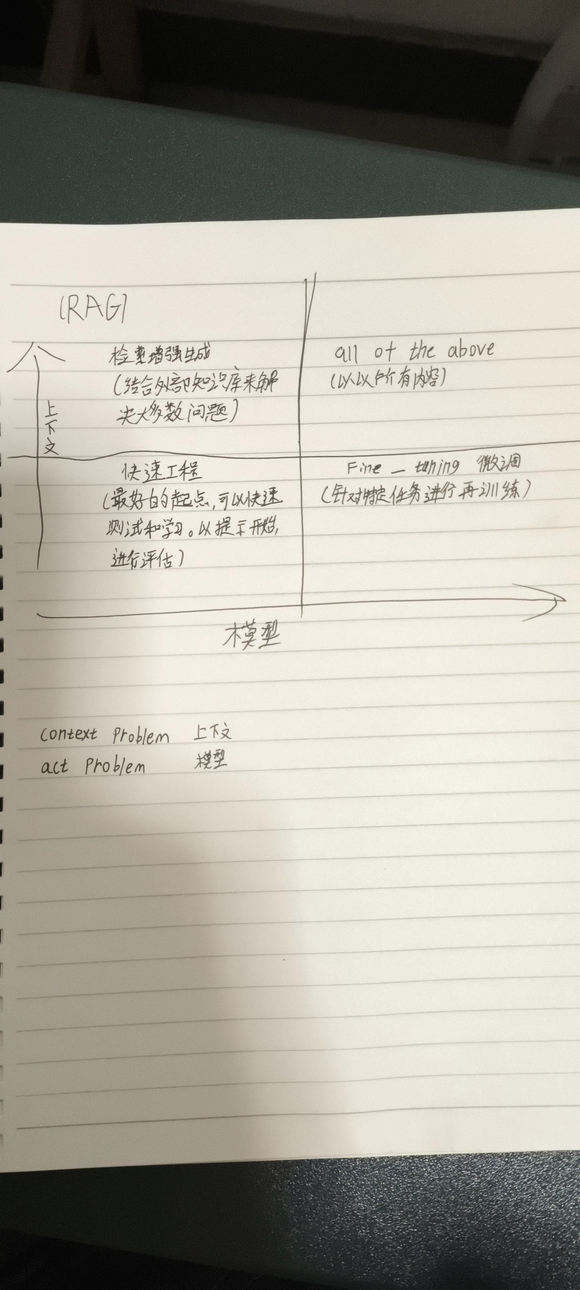 (RAG)
检索增强生成
(结合外部知识库来解
决大多数问题)
上下文
all of the above
(以以上所有内容)
快速工程
(最好的的起点,可以快速
测试和学习。以提示开始,
进行评估)
Fine — tuning 微调
(针对特定任务进行再训练)
模型
context problem 上下文
act problem 模型